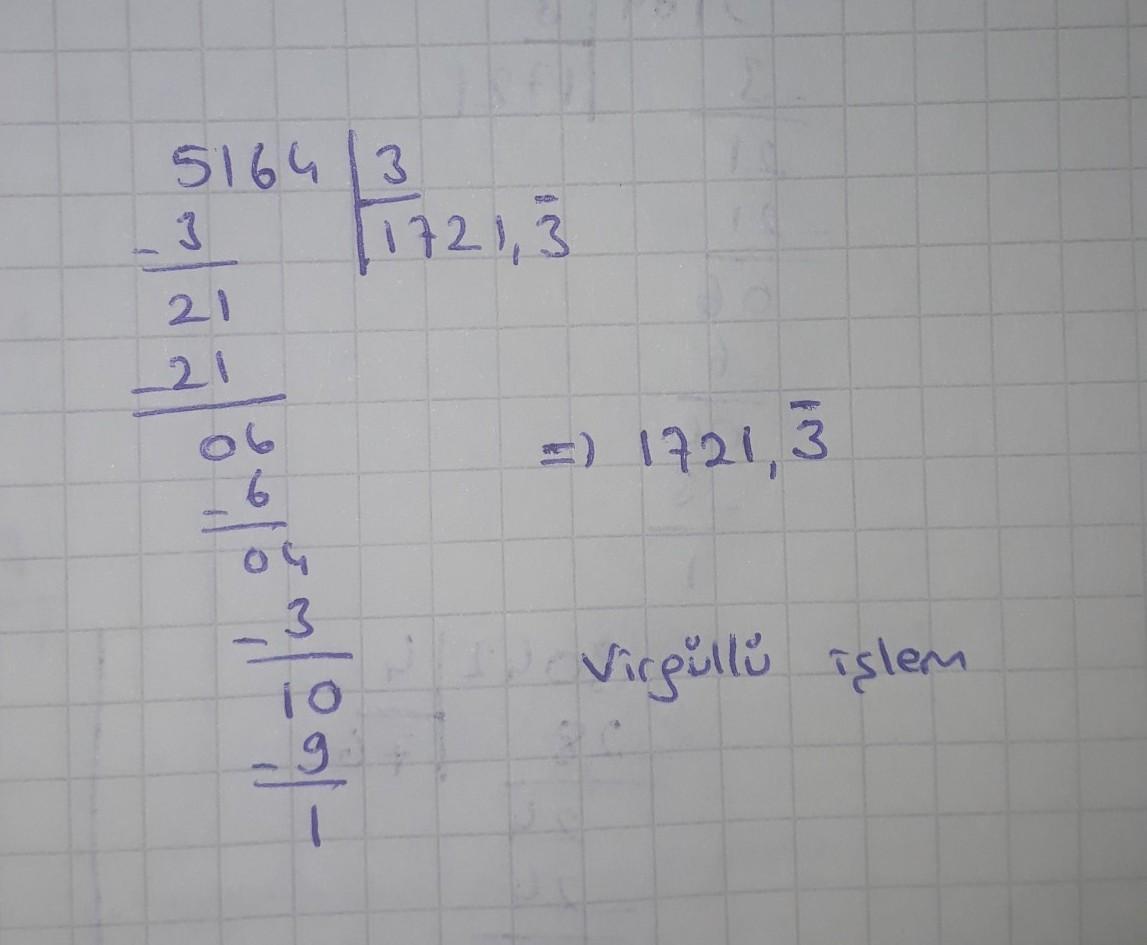 5164 3
- 3 1721,3̅
21
- 21
06
=> 1721,3̅
- 6
04
- 3
Virgüllü işlem
10
- 9
1